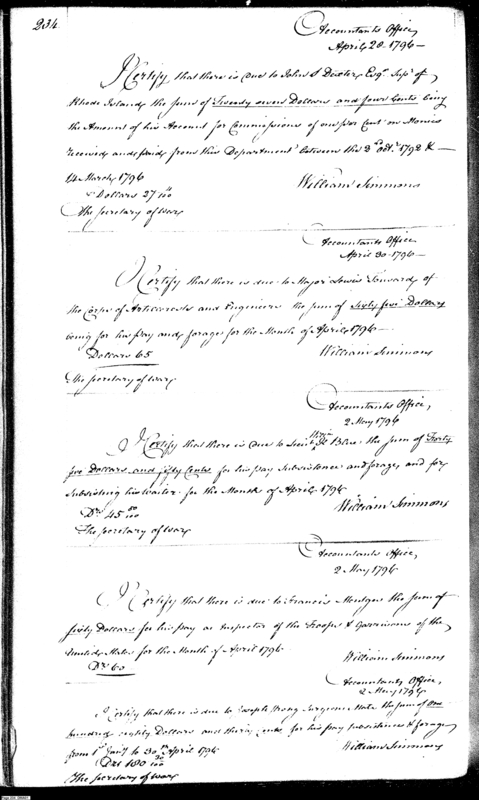 234.
Accountants Office,
April 28. 1796 —
I Certify that there is due to John S Dexter Esqr. Supr. of
Rhode Island, the sum of Twenty seven Dollars and four Cents being
the Amount of his Account for Commissions of one per Cent on Monies
received and paid from this Department between the 3d. Octr. 1792 &
14 March 1796
William Simmons
Dollars 27 /100
The Secretary of War
Accountants Office
April 30. 1796 —
I Certify that there is due to Major Lewis Tousard, of
the Corps of Artillerists and Engineers the sum of Sixty five Dollars
being for his pay and forage for the Month of April 1796
Dollars 65
William Simmons
The Secretary of War
Accountants Office,
2 May 1796
I Certify that there is due to the sum of Forty
five Dollars, and fifty Cents for his pay Subsistence and forage, and for
subsisting his waiter for the Month of April 1796
William Simmons
Drs. 45 50/100
The Secretary of War
Accountants Office,
2 May 1796
I Certify that there is due to Francis Mentges the sum of
sixty Dollars for his pay as Inspector of the Troops & Garrisons of the
United States for the Month of April 1796
Drs 60
William Simmons
Accountants Office,
2 May 1796
I Certify that there is due to Joseph Strong Surgeons Mate the sum of One
hundred eighty Dollars and thirty Cents for his pay subsistence & forage
from 1st. Jany. to 30th April 1796
William Simmons
Drs 180 30/100
The Secretary of War